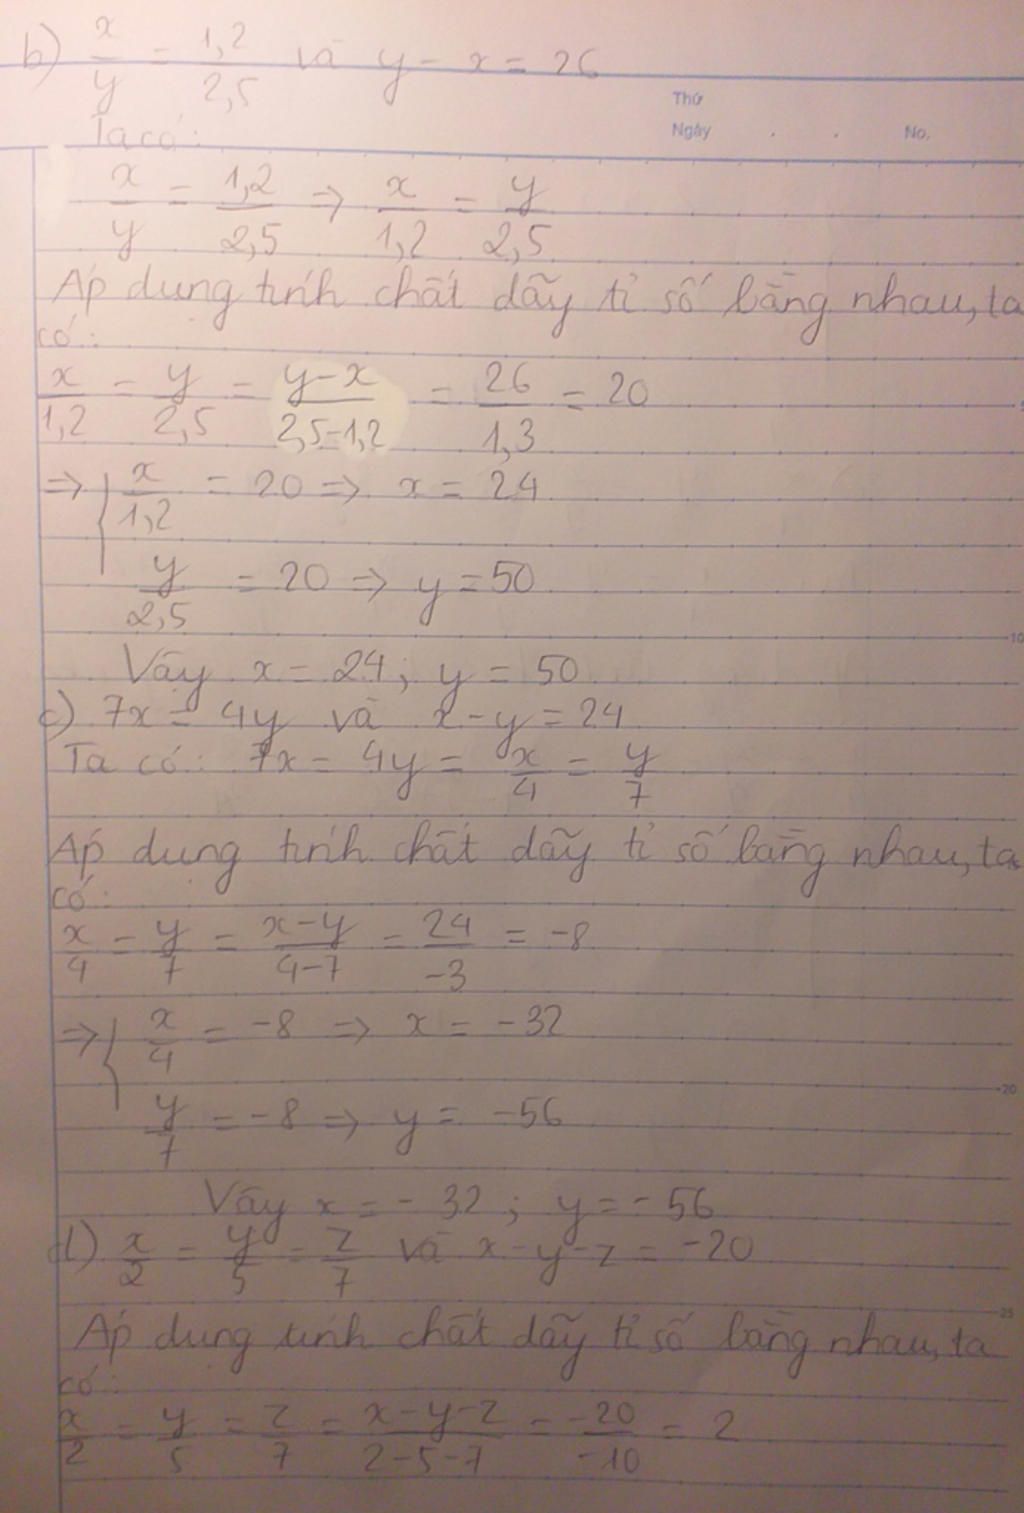 b) x/y = 1,2/2,5 và y - x = 26
Thứ
Ngày . . No.
Ta có:
x/y = 1,2/2,5 => x/1,2 = y/2,5
Áp dụng tính chất dãy tỉ số bằng nhau, ta
có:
x/1,2 = y/2,5 = y-x/2,5-1,2 = 26/1,3 = 20
5
=> { x/1,2 = 20 => x = 24
y/2,5 = 20 => y = 50
10
Vậy x = 24; y = 50
c) 7x = 4y và x - y = 24
Ta có: 7x = 4y = x/4 = y/7
Áp dụng tính chất dãy tỉ số bằng nhau, ta
có:
x/4 = y/7 = x-y/4-7 = 24/-3 = -8
=> { x/4 = -8 => x = -32
20
y/7 = -8 => y = -56
Vậy x = - 32 ; y = - 56
d) x/2 = y/5 = z/7 và x - y - z = -20
25
Áp dụng tính chất dãy tỉ số bằng nhau, ta
có:
x/2 = y/5 = z/7 = x-y-z/2-5-7 = -20/-10 = 2